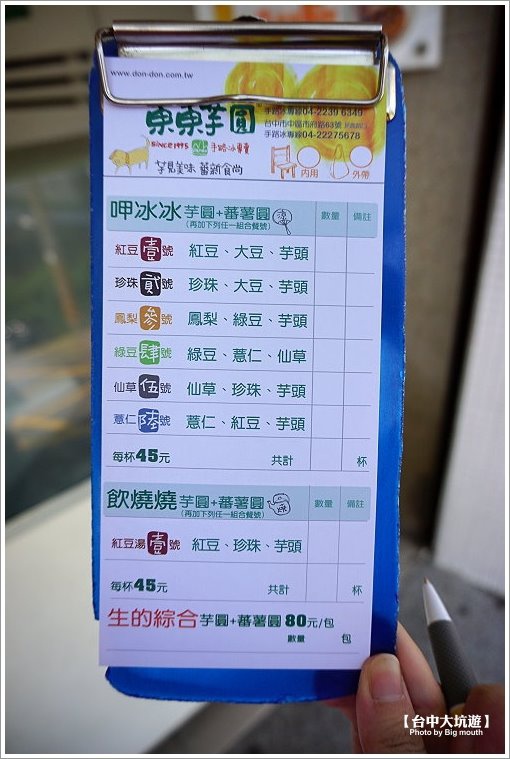 www.don-don.com.tw
東東芋圓
SINCE 1995 手路冰專賣
芋見美味 蕃新食尚
手路冰專線04-2239 6349
台中市中區市府路63號
手路冰專線04-22275678
內用 外帶
呷冰冰 芋圓+蕃薯圓 涼 數量 備註
(再加下列任一組合餐號)
紅豆 壹 號 紅豆、大豆、芋頭
珍珠 貳 號 珍珠、大豆、芋頭
鳳梨 參 號 鳳梨、綠豆、芋頭
綠豆 肆 號 綠豆、薏仁、仙草
仙草 伍 號 仙草、珍珠、芋頭
薏仁 陸 號 薏仁、紅豆、芋頭
每杯45元 共計 杯
飲燒燒 芋圓+蕃薯圓 數量 備註
(再加下列任一組合餐號)
紅豆湯 壹 號 紅豆、珍珠、芋頭
每杯45元 共計 杯
生的綜合 芋圓+蕃薯圓 80元/包
數量 包
【台中大坑遊】
Photo by Big mouth